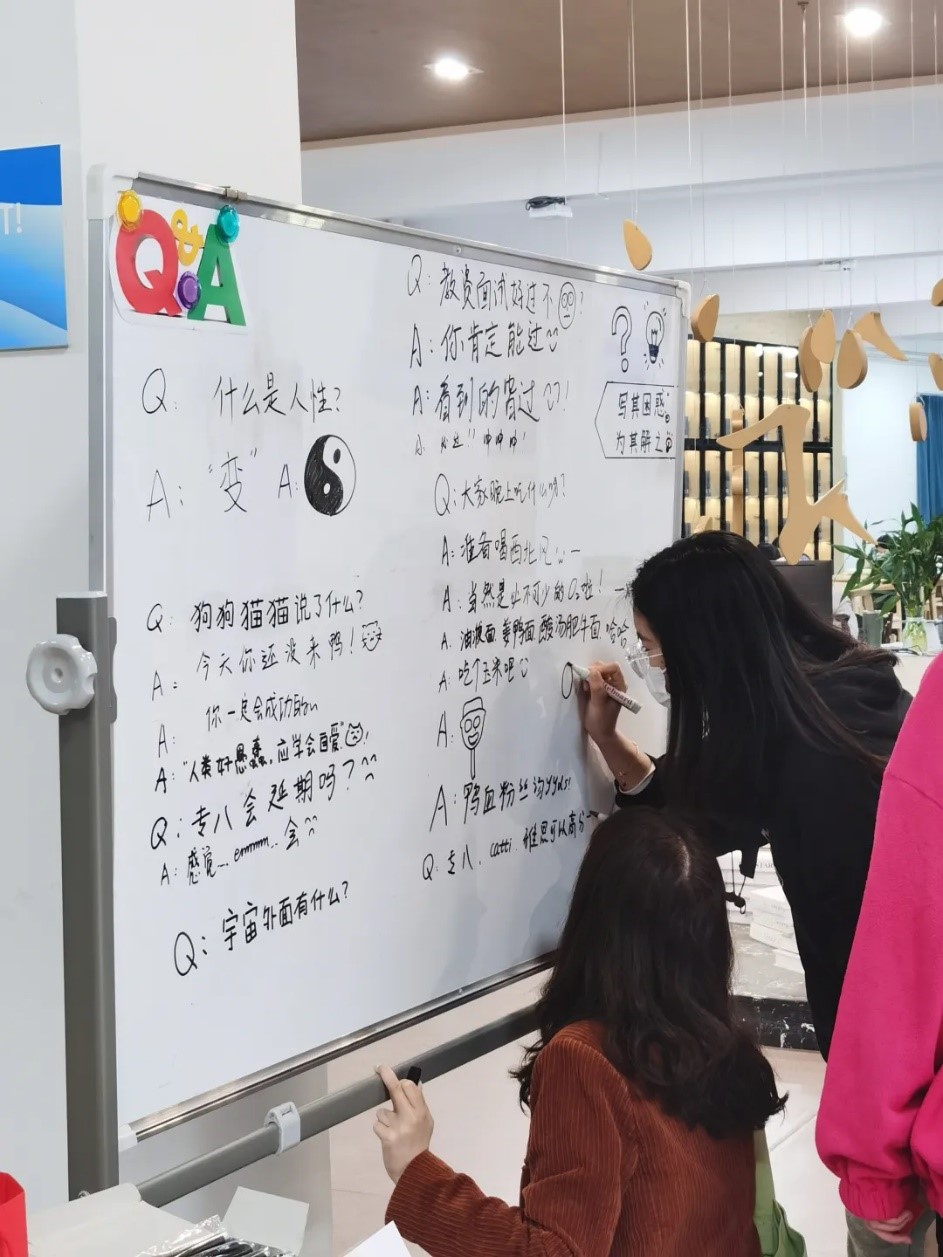 T!
Q&A
Q: 什么是人性?
A: "变" A:
Q: 狗狗猫猫说了什么?
A: 今天你还没来鸭!
A: 你一定会成功的
A: "人类好愚蠢,应学会自爱"!
Q: 专八会延期吗?^^
A: 感觉...emmm..会^^
Q: 宇宙外面有什么?
Q: 教资面试好过不?
A: 你肯定能过
A: 看到的皆过!
Q: 大家晚上吃什么呀?
A: 准备喝西北风
A: 当然是必不可少的O₂啦!
A: 油泼面 姜鸭面 酸汤肥牛面 哈哈
A: 吃个玉米吧
A:
A: 鸭血粉丝汤yyds!
Q: 专八、catti 雅思可以高分
?
写其困惑
为其解之